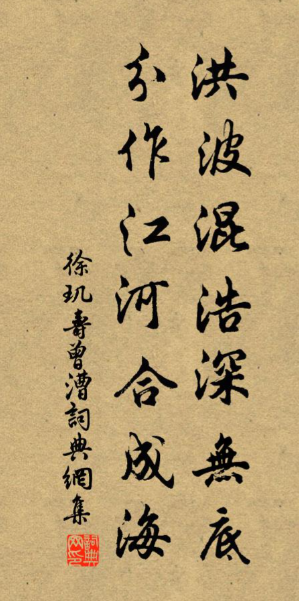 洪波混浩深無底
分作江河合成海
徐玑壽曾漕詞典網集